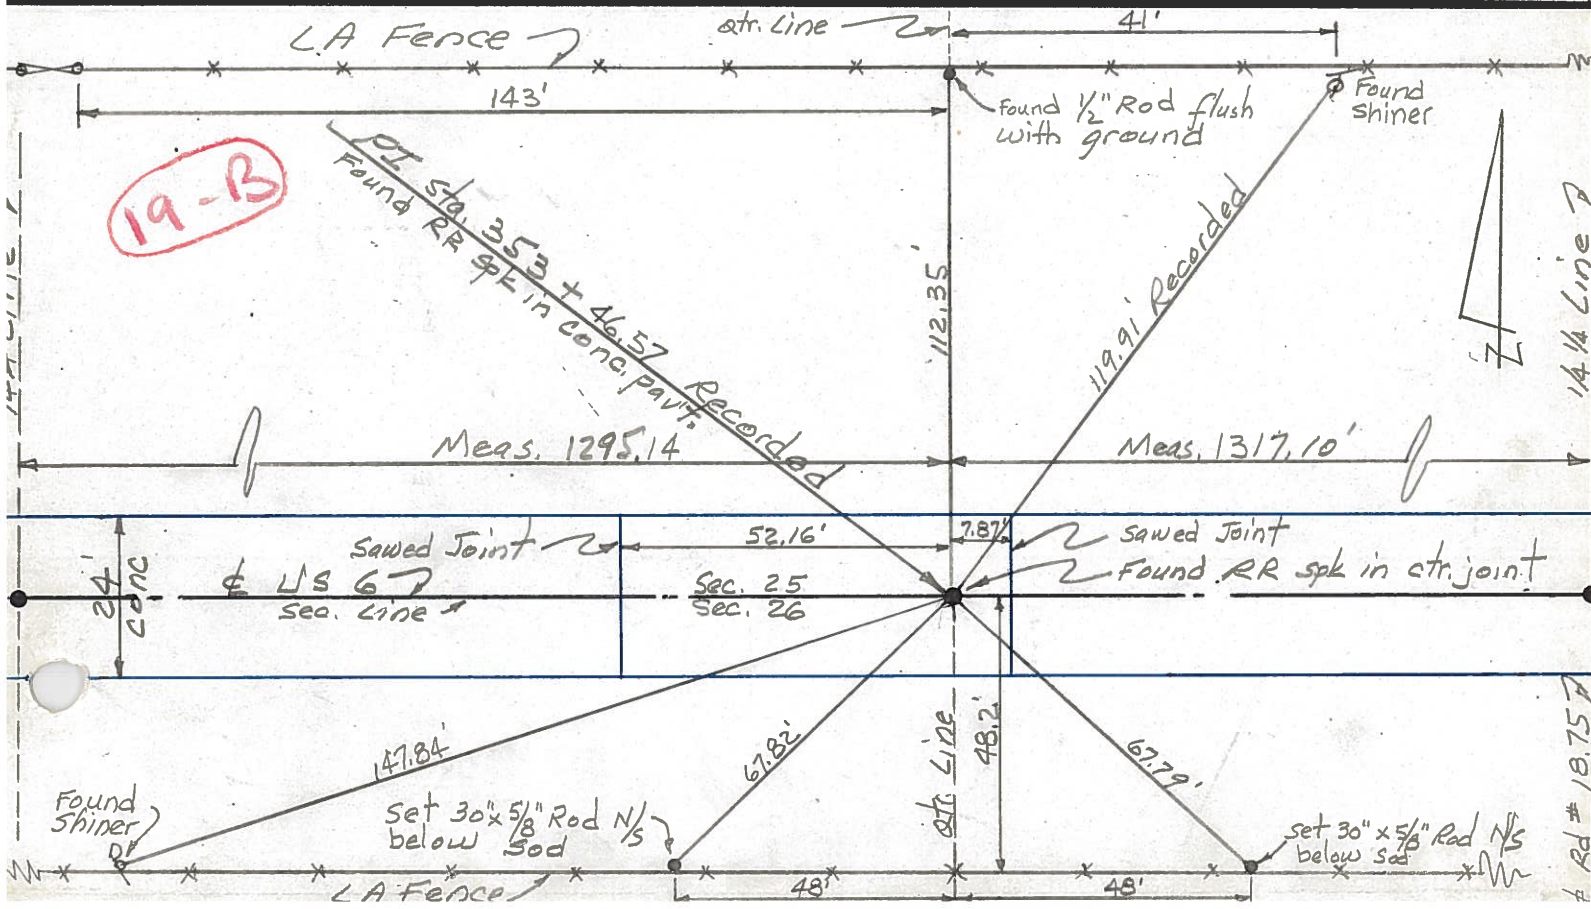 L.A Fence
Qtr. Line
41'
143'
Found 1/2" Rod flush
with ground
Found
Shiner
19-B
PI Sta. 353 + 46.57 Recorded
Found RR spk in conc. pav't.
112.35'
119.91' Recorded
1/4 1/4 Line
N
Meas. 1295.14'
Meas. 1317.10'
24'
conc
Sawed Joint
52.16'
7.87'
Sawed Joint
Found RR spk in ctr. joint
₵ US 6
Sec. Line
Sec. 25
Sec. 26
147.84'
67.82'
Qtr. Line
48.2'
67.79'
Rd # 18.75
Found
Shiner
Set 30" x 5/8" Rod N/S
below Sod
Set 30" x 5/8" Rod N/S
below Sod
LA Fence
48'
48'